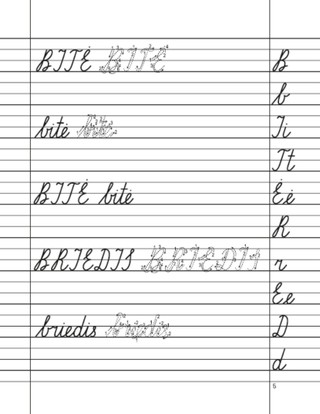 BITĖ BITĖ B
b
bitė bitė Ii
Tt
BITĖ bitė Ėė
R
BRIEDIS BRIEDIS r
Ee
briedis briedis D
d
5